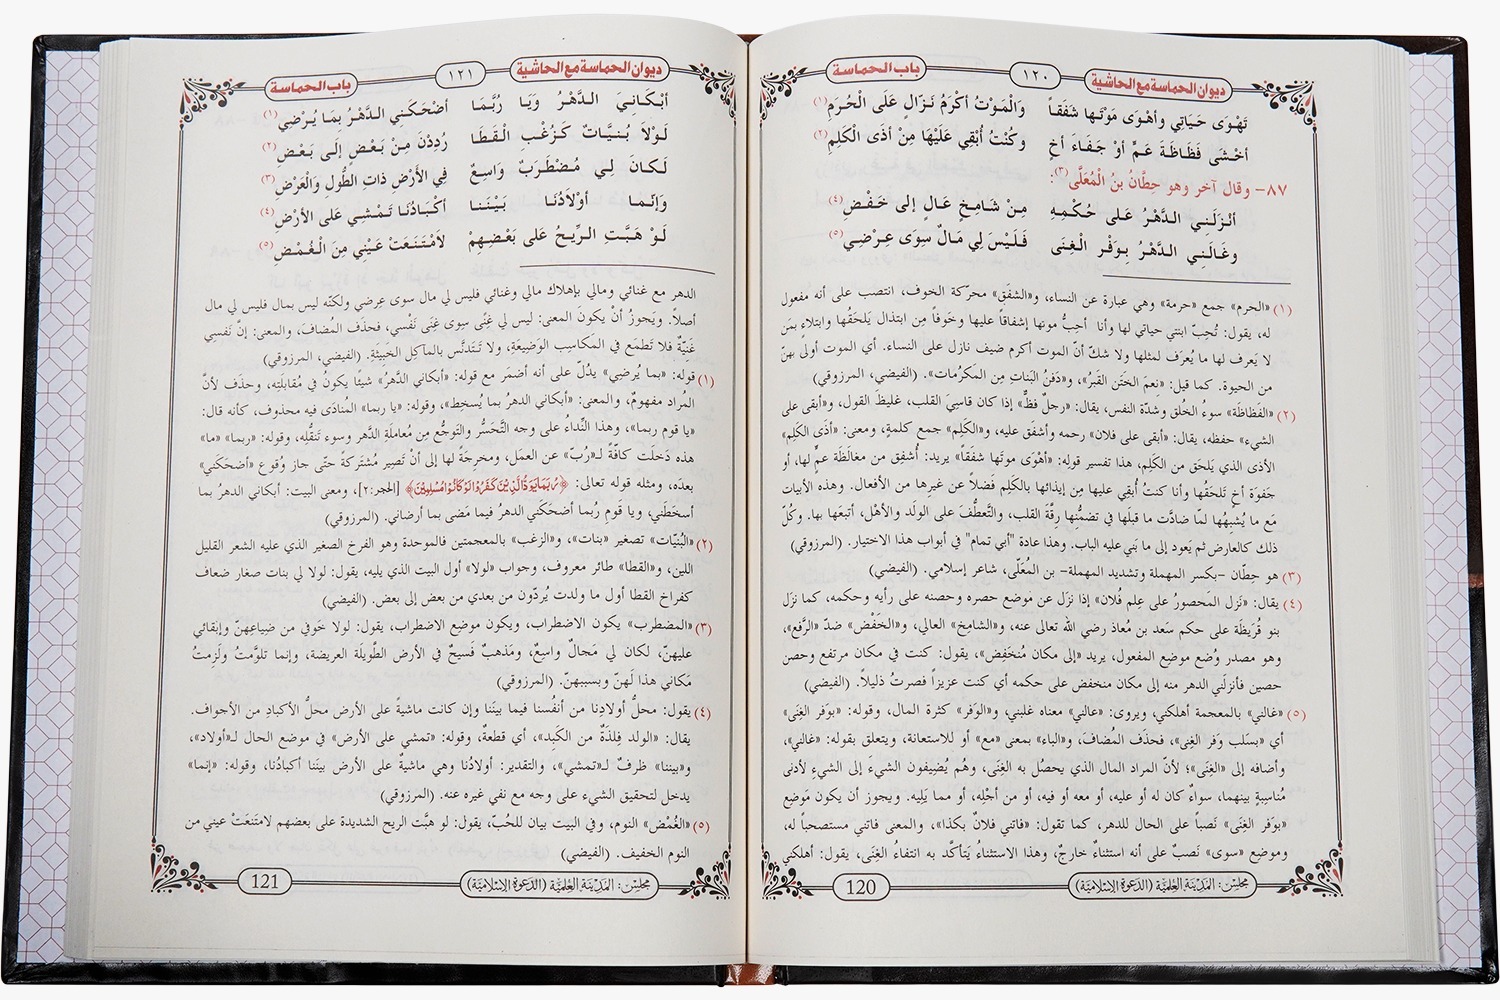 ديوان الحماسة مع الحاشية ١٢٠ باب الحماسة
تَهْوَى حَيَاتِي وأهْوَى مَوْتَها شَفَقاً وَالْمَوْتُ أكْرَمُ نَزّالٍ عَلَى الْحُرَمِ(١)
أخْشَى فَظَاظَةَ عَمٍّ أوْ جَفَاءَ أخٍ وكُنْتُ أُبْقِي عَلَيْهَا مِنْ أذَى الْكَلِمِ(٢)
٨٧- وقال آخر وهو حِطَّانُ بنُ الْمُعَلَّى(٣):
أنْزَلَنِي الدَّهْرُ عَلى حُكْمِهِ مِنْ شَامِخٍ عَالٍ إلى خَفْضِ(٤)
وغَالَنِي الدَّهْرُ بِوَفْرِ الْغِنَى فَلَيْسَ لِي مَالٌ سِوَى عِرْضِي(٥)
(١) «الحرم» جمع «حرمة» وهي عبارة عن النساء، و«الشفَق» محرّكة الخوف، انتصب على أنه مفعول
له، يقول: تُحِبّ ابنتي حياتي لها وأنا أحِبُّ موتها إشفاقاً عليها وخَوفاً مِن ابتذال يَلحَقُها وابتلاءٍ بمَن
لا يَعرِف لها ما يُعرَف لمثلها ولا شكّ أنّ الموت أكرم ضيف نازل على النساء. أي الموت أولى بهنّ
من الحيوة. كما قيل: «نِعمَ الخَتَن القبرُ»، و«دَفنُ البَناتِ مِن المَكرُمات». (الفيضي، المرزوقي)
(٢) «الفظاظة» سوءُ الخُلق وشدّة النفس، يقال: «رجلٌ فظٌّ» إذا كان قاسِيَ القلب، غليظَ القول، و«أبقى على
الشيء» حفظه، يقال: «أبقى على فلان» رحمه وأشفَق عليه، و«الكَلِم» جمع كلمةٍ، ومعنى: «أذَى الكَلِم»
الأذى الذي يَلحَق من الكَلِم، هذا تفسير قوله: «أهْوَى موتَها شفقاً» يريد: أشفِق من مغالَظَة عمٍّ لها، أو
جَفوَة أخٍ تَلحَقُها وأنا كنتُ أُبقِي عليها مِن إيذائها بالكَلِم فضلاً عن غيرها من الأفعال. وهذه الأبيات
مَع ما يُشبِهُها لمّا ضادَّت ما قبلَها في تضمُّنها رِقّةَ القلب، والتَّعطُّفَ على الولَد والأهْل، أتبَعَها بها. وكُلّ
ذلك كالعارِض ثم يَعود إلى ما بَني عليه الباب. وهذا عادة "أبي تمام" في أبواب هذا الاختيار. (المرزوقي)
(٣) هو حِطّان -بكسر المهملة وتشديد المهملة- بن المُعَلّى، شاعر إسلامي. (الفيضي)
(٤) يقال: «نَزل المَحصورُ على عِلم فُلان» إذا نزَل عن مَوضع حصره وحصنه على رأيه وحكمه، كما نزَل
بنو قُرَيظَة على حكم سَعد بن مُعاذ رضي الله تعالى عنه، و«الشامِخ» العالي، و«الخَفْض» ضدّ «الرَّفع»،
وهو مصدر وُضع موضِع المفعول، يريد «إلى مكان مُنخفِض»، يقول: كنت في مكان مرتفع وحصن
حصين فأنزلَني الدهر منه إلى مكان منخفض على حكمه أي كنت عزيزاً فصرتُ ذليلاً. (الفيضي)
(٥) «غالني» بالمعجمة أهلكني، ويروى: «عالني» معناه غلبني، و«الوَفر» كثرة المال، وقوله: «بوَفر الغِنَى»
أي «بسَلب وَفر الغِنى»، فحذَف المُضافَ، و«الباء» بمعنى «مع» أو للاستعانة، ويتعلق بقوله: «غالني»،
وأضافه إلى «الغِنَى»؛ لأنّ المراد المال الذي يحصُل به الغِنَى، وهُم يُضِيفون الشيءَ إلى الشيءِ لأدنى
مُناسِبةٍ بينهما، سواءٌ كان له أو عليه، أو معه أو فيه، أو من أجْلِه، أو مما يَلِيه. ويجوز أن يكون مَوضِع
«بوَفر الغِنَى» نَصباً على الحال للدهر، كما تقول: «فاتني فلانٌ بكذا»، والمعنى فاتني مستصحباً له،
وموضِع «سوى» نَصبٌ على أنه استثناءٌ خارجٌ، وهذا الاستثناءُ يَتأكّد به انتفاءُ الغِنَى، يقول: أهلكني
مجلس: المدينة العلمية (الدعوة الإسلامية) 120
ديوان الحماسة مع الحاشية ١٢١ باب الحماسة
أبْكَانِيَ الدَّهْرُ وَيَا رُبَّمَا أضْحَكَنِي الدَّهْرُ بِمَا يُرْضِي(١)
لَوْلاَ بُنَيَّاتٌ كَزُغْبِ الْقَطَا رُدِدْنَ مِنْ بَعْضٍ إلَى بَعْضِ(٢)
لَكَانَ لِي مُضْطَرَبٌ وَاسِعٌ فِي الأَرْضِ ذَاتِ الطُّولِ وَالْعَرْضِ(٣)
وَإنّمَا أوْلاَدُنَا بَيْنَنَا أكْبَادُنَا تَمْشِي عَلَى الأرْضِ(٤)
لَوْ هَبَّتِ الرِّيحُ عَلى بَعْضِهِمْ لاَمْتَنَعَتْ عَيْنِي مِنَ الْغُمْضِ(٥)
الدهر مع غنائي ومالي بإهلاك مالي وغنائي فليس لي مال سوى عِرضي ولكنّه ليس بمال فليس لي مال
أصلاً. ويَجوزُ أنْ يكونَ المعنى: ليس لي غِنًى سِوى غِنَى نَفْسي، فحذَف المُضافَ، والمعنى: إنّ نَفْسي
غَنِيّةٌ فلا تَطمَع في المكاسِب الوَضِيعَةِ، ولا تَتَدنَّس بالماكِل الخَبيثَةِ. (الفيضي، المرزوقي)
(١) قوله: «بما يُرضِي» يدُلّ على أنه أضمَر مع قوله: «أبكاني الدَّهرُ» شيئًا يكونُ في مُقابلَتِه، وحذَف لأنّ
المُراد مفهومٌ، والمعنى: «أبكاني الدهرُ بما يُسخِط»، وقوله: «يا ربما» المُنادَى فيه محذوف، كأنه قال:
«يا قوم ربما»، وهذا النِّداءُ على وجه التَّحَسُّر والتَوجُّع مِن مُعاملَةِ الدَّهر وسوء تَنقُّله، وقوله: «ربما» «ما»
هذه دَخلَت كافّةً لـ«رُبّ» عن العمَل، ومخرجَةً لها إلى أنْ تَصِير مُشتَركَةً حتّى جاز وُقوع «أضحَكَني»
بعدَه، ومثله قوله تعالى: ﴿رُبَمَا يَوَدُّ الَّذِيْنَ كَفَرُوْا لَوْ كَانُوْا مُسْلِمِيْنَ﴾ [الحجر:٢]، ومعنى البيت: أبكاني الدهرُ بما
أسخَطَني، ويا قومِ رُبما أضحَكني الدهرُ فيما مَضى بما أرضاني. (المرزوقي)
(٢) «البُنيّات» تصغير «بنات»، و«الزغب» بالمعجمتين فالموحدة وهو الفرخ الصغير الذي عليه الشعر القليل
اللين، و«القطا» طائر معروف، وجواب «لولا» أول البيت الذي يليه، يقول: لولا لي بنات صغار ضعاف
كفراخ القطا أول ما ولدت يُردّون من بعدي من بعض إلى بعض. (الفيضي)
(٣) «المضطرب» يكون الاضطراب، ويكون موضِع الاضطراب، يقول: لولا خَوفي من ضِياعِهنّ وإبقائي
عليهنّ، لكان لي مَجالٌ واسِعٌ، ومَذهبٌ فَسيحٌ في الأرض الطويلَة العريضة، وإنما تلوَّمتُ ولَزِمتُ
مَكاني هذا لَهنّ وبسببهنّ. (المرزوقي)
(٤) يقول: محلُّ أولادِنا من أنفُسنا فيما بينَنا وإن كانت ماشيةً على الأرض محلُّ الأكبادِ من الأجواف.
يقال: «الولد فِلذَةٌ من الكَبِد»، أي قطعةٌ، وقوله: «تمشي على الأرض» في موضع الحال لـ«أولاد»،
و«بيننا» ظرفٌ لـ«تمشي»، والتقدير: أولادُنا وهي ماشيةٌ على الأرض بينَنا أكبادُنا، وقوله: «إنما»
يدخل لتحقيق الشيء على وجه مع نفي غيره عنه. (المرزوقي)
(٥) «الغُمْض» النوم، وفي البيت بيان للحُبّ، يقول: لو هبّت الريح الشديدة على بعضهم لامتَنعَتْ عيني من
النوم الخفيف. (الفيضي)
مجلس: المدينة العلمية (الدعوة الإسلامية) 121